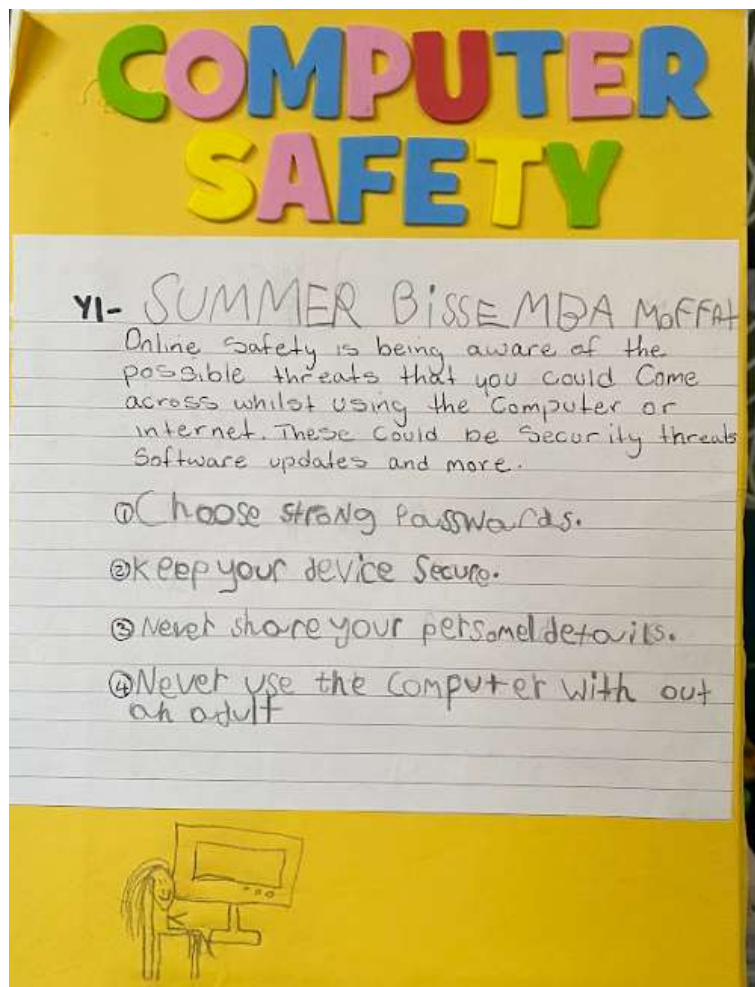 COMPUTER
SAFETY
Y1- SUMMER BiSSEMBA MoFFAt
Online safety is being aware of the
possible threats that you could Come
across whilst using the Computer or
internet. These could be Security threats
Software updates and more.
① Choose strong Passwords.
② Keep your device Secure.
③ Never share your personel details.
④ Never use the Computer with out
an adult